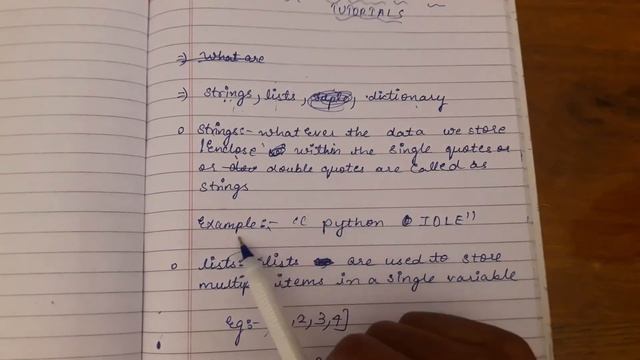 TUTORIALS
=) What are
=) Strings, lists, tuple, dictionary
o Strings:- what ever the data we store
/Enclose within the single quotes or
or double quotes are called as
strings
Example:- " python IDLE"
o lists:- lists are used to store
items in a single variable
Eg:- ,2,3,4]